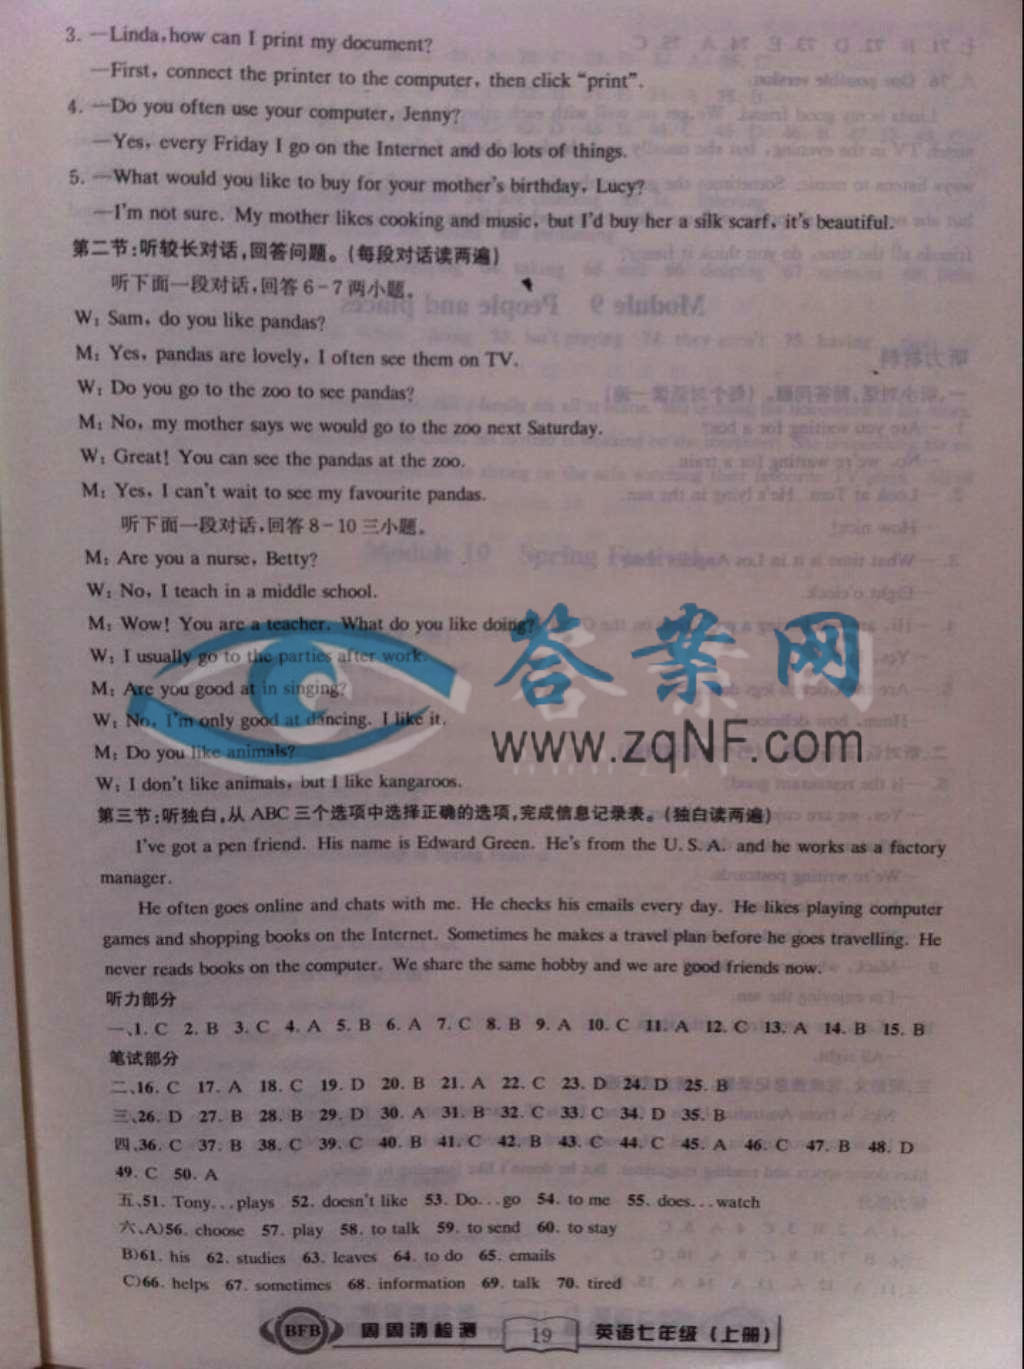 3. —Linda, how can I print my document?
—First, connect the printer to the computer, then click “print”.
4. —Do you often use your computer, Jenny?
—Yes, every Friday I go on the Internet and do lots of things.
5. —What would you like to buy for your mother's birthday, Lucy?
—I'm not sure. My mother likes cooking and music, but I'd buy her a silk scarf, it's beautiful.
第二节:听较长对话,回答问题。(每段对话读两遍)
听下面一段对话,回答6-7两小题。
W: Sam, do you like pandas?
M: Yes, pandas are lovely, I often see them on TV.
W: Do you go to the zoo to see pandas?
M: No, my mother says we would go to the zoo next Saturday.
W: Great! You can see the pandas at the zoo.
M: Yes, I can't wait to see my favourite pandas.
听下面一段对话,回答8-10三小题。
M: Are you a nurse, Betty?
W: No, I teach in a middle school.
M: Wow! You are a teacher. What do you like doing?
W: I usually go to the parties after work.
M: Are you good at in singing?
W: No, I'm only good at dancing. I like it.
M: Do you like animals?
W: I don't like animals, but I like kangaroos.
答案网
www.zqNF.com
第三节:听独白,从ABC三个选项中选择正确的选项,完成信息记录表。(独白读两遍)
I've got a pen friend. His name is Edward Green. He's from the U.S.A. and he works as a factory
manager.
He often goes online and chats with me. He checks his emails every day. He likes playing computer
games and shopping books on the Internet. Sometimes he makes a travel plan before he goes travelling. He
never reads books on the computer. We share the same hobby and we are good friends now.
听力部分
一、1. C 2. B 3. C 4. A 5. B 6. A 7. C 8. B 9. A 10. C 11. A 12. C 13. A 14. B 15. B
笔试部分
二、16. C 17. A 18. C 19. D 20. B 21. A 22. C 23. D 24. D 25. B
三、26. D 27. B 28. B 29. D 30. A 31. B 32. C 33. C 34. D 35. B
四、36. C 37. B 38. C 39. C 40. B 41. C 42. B 43. C 44. C 45. A 46. C 47. B 48. D
49. C 50. A
五、51. Tony...plays 52. doesn't like 53. Do...go 54. to me 55. does...watch
六、A)56. choose 57. play 58. to talk 59. to send 60. to stay
B)61. his 62. studies 63. leaves 64. to do 65. emails
C)66. helps 67. sometimes 68. information 69. talk 70. tired
BFB 周周清检测 19 英语七年级(上册)